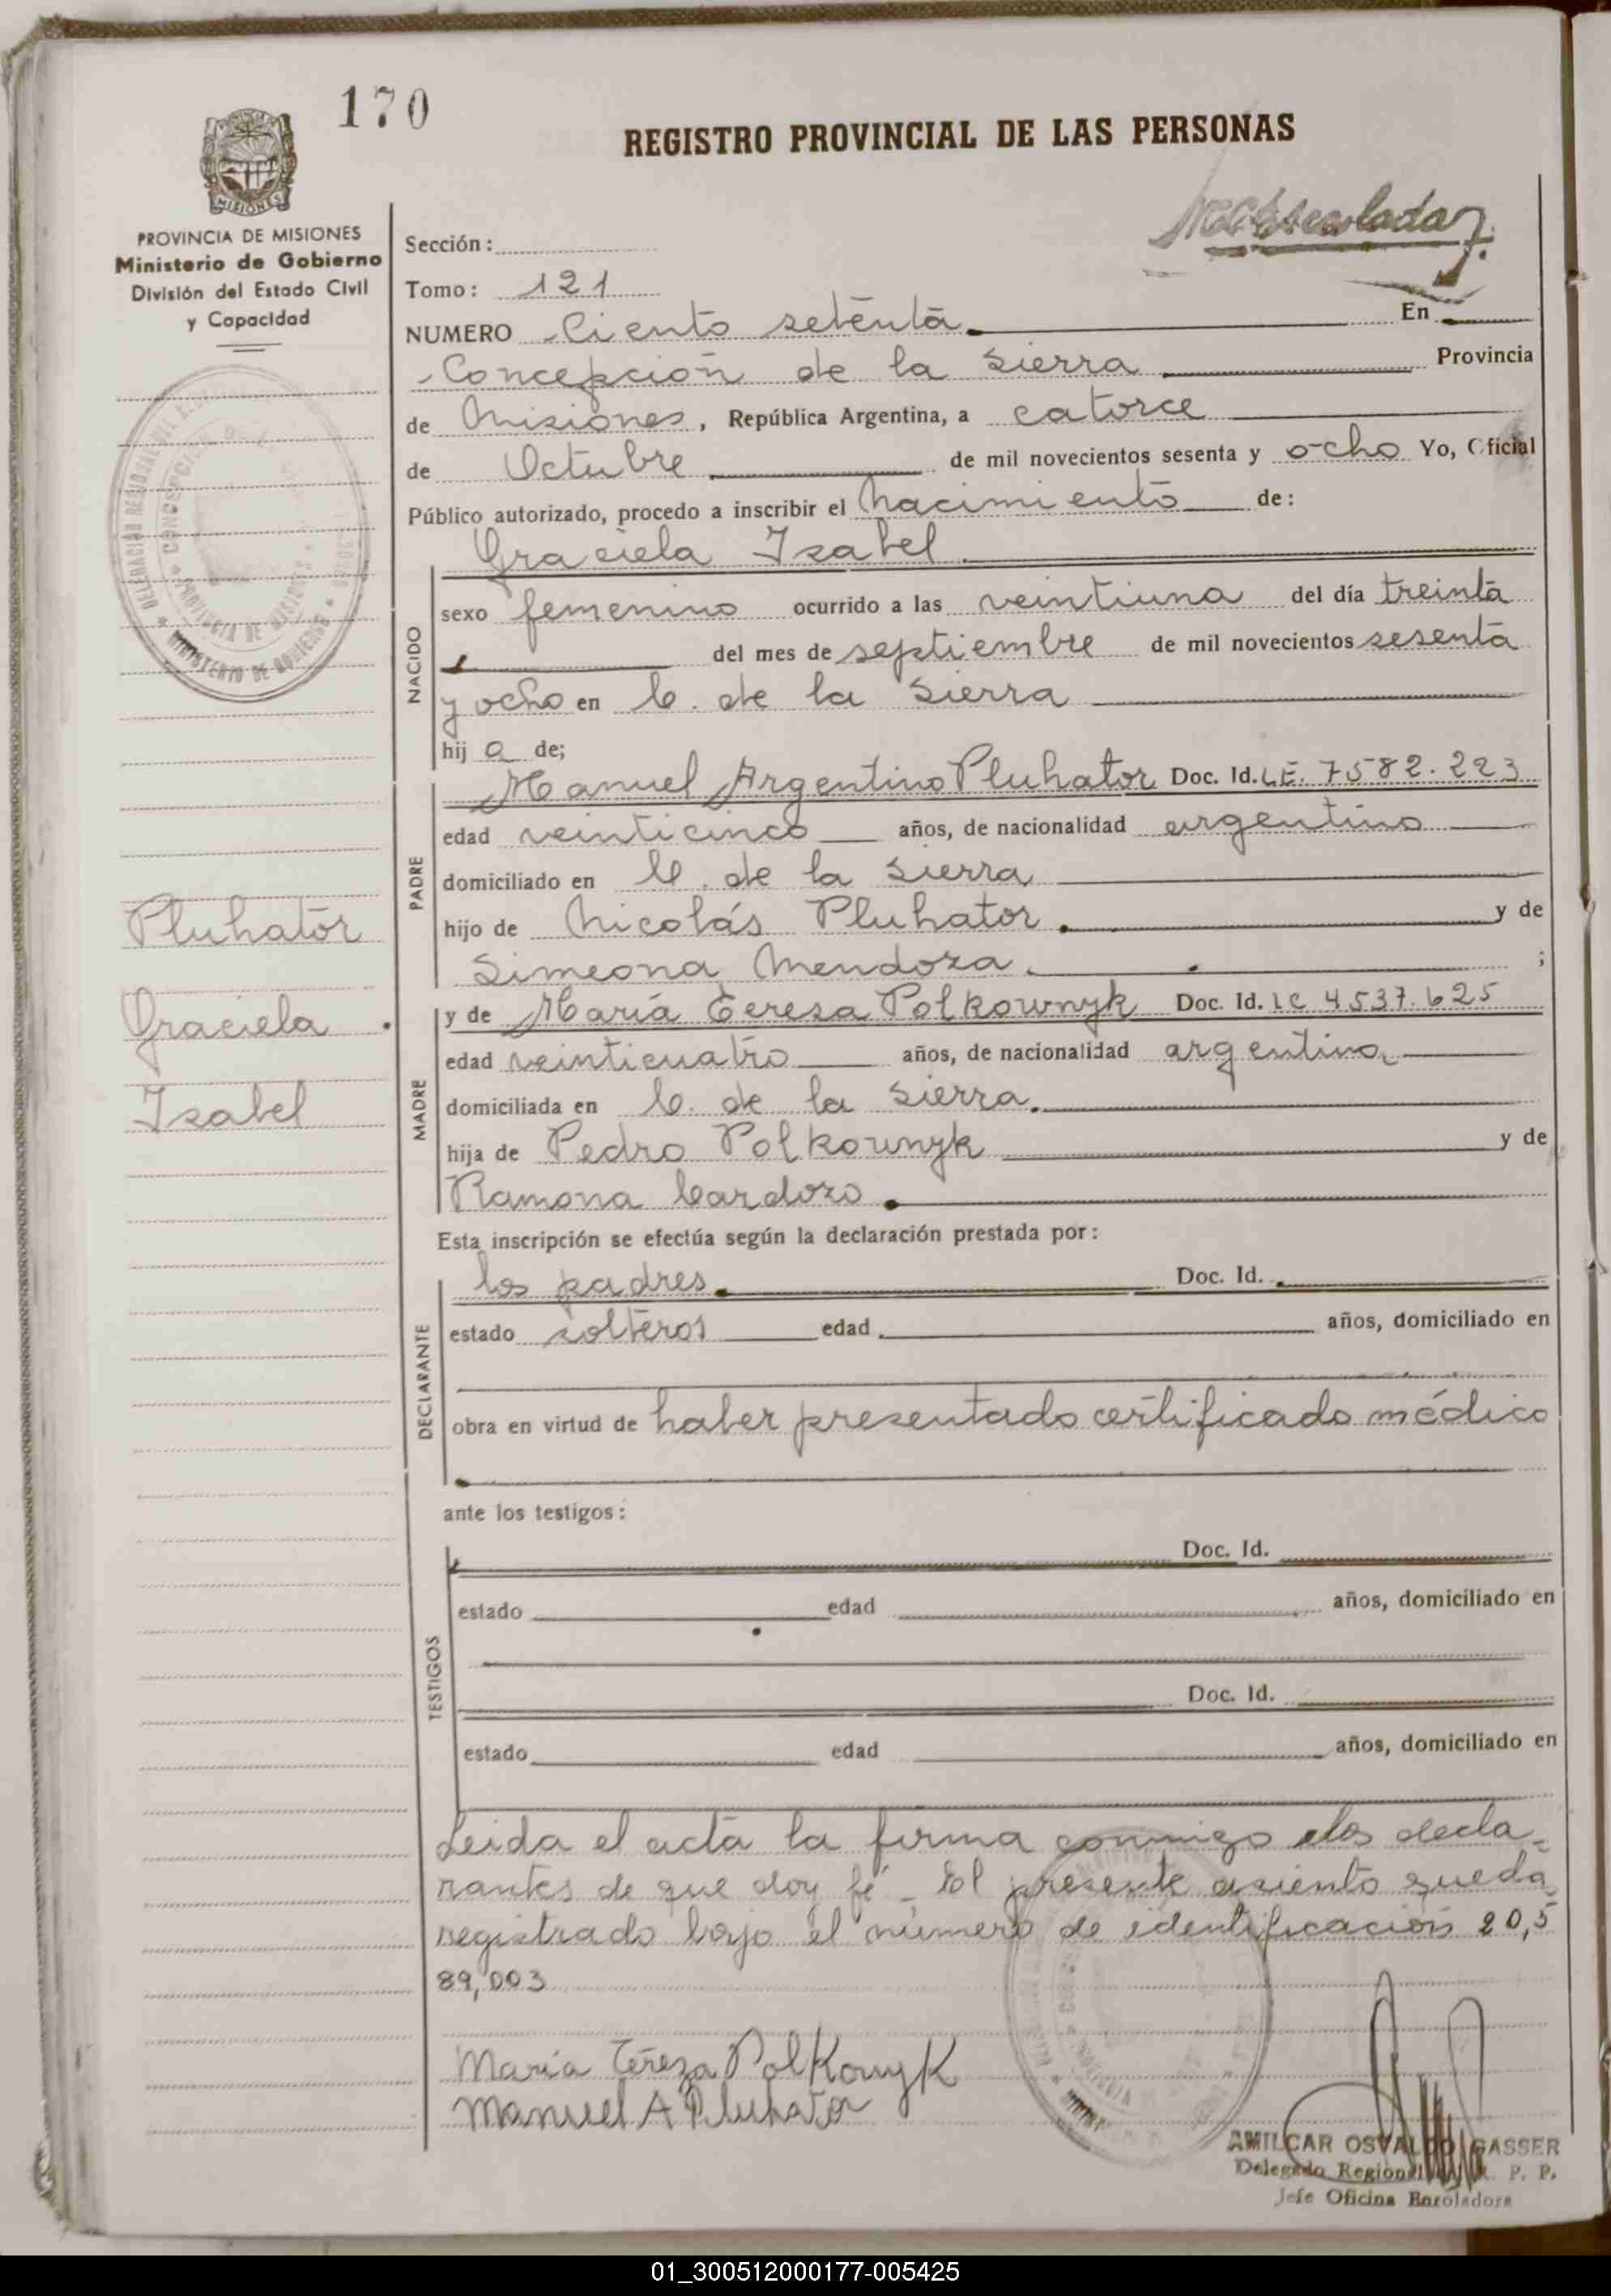 170
REGISTRO PROVINCIAL DE LAS PERSONAS
MISIONES
PROVINCIA DE MISIONES
Ministerio de Gobierno
División del Estado Civil
y Capacidad
Sección:
Tomo: 121
NUMERO Ciento setenta En
Concepción de la Sierra Provincia
de Misiones, República Argentina, a catorce
de Octubre de mil novecientos sesenta y ocho Yo, Oficial
Público autorizado, procedo a inscribir el Nacimiento de:
Graciela Isabel
NACIDO
sexo femenino ocurrido a las veintiuna del día treinta
del mes de septiembre de mil novecientos sesenta
y ocho en C. de la Sierra
hij a de;
PADRE
Manuel Argentino Pluhator Doc. Id. L.E. 7582.223
edad veinticinco años, de nacionalidad argentino
domiciliado en C. de la Sierra
hijo de Nicolás Pluhator y de
Simeona Mendoza ;
MADRE
y de María Teresa Polkownyk Doc. Id. LC 4537.625
edad veinticuatro años, de nacionalidad argentina
domiciliada en C. de la Sierra.
hija de Pedro Polkownyk y de
Ramona Cardozo
Pluhator
Graciela
Isabel
Esta inscripción se efectúa según la declaración prestada por:
DECLARANTE
los padres Doc. Id.
estado solteros edad años, domiciliado en
obra en virtud de haber presentado certificado médico
ante los testigos:
TESTIGOS
Doc. Id.
estado edad años, domiciliado en
Doc. Id.
estado edad años, domiciliado en
Leida el acta la firma conmigo los decla-
rantes de que doy fé - El presente asiento queda
registrado bajo el número de identificación 20,5
89,003
María Tereza Polkowyk
Manuel A Pluhator
AMILCAR OSVALDO GASSER
Delegado Regional R. P. P.
Jefe Oficina Enroladora
01_300512000177-005425